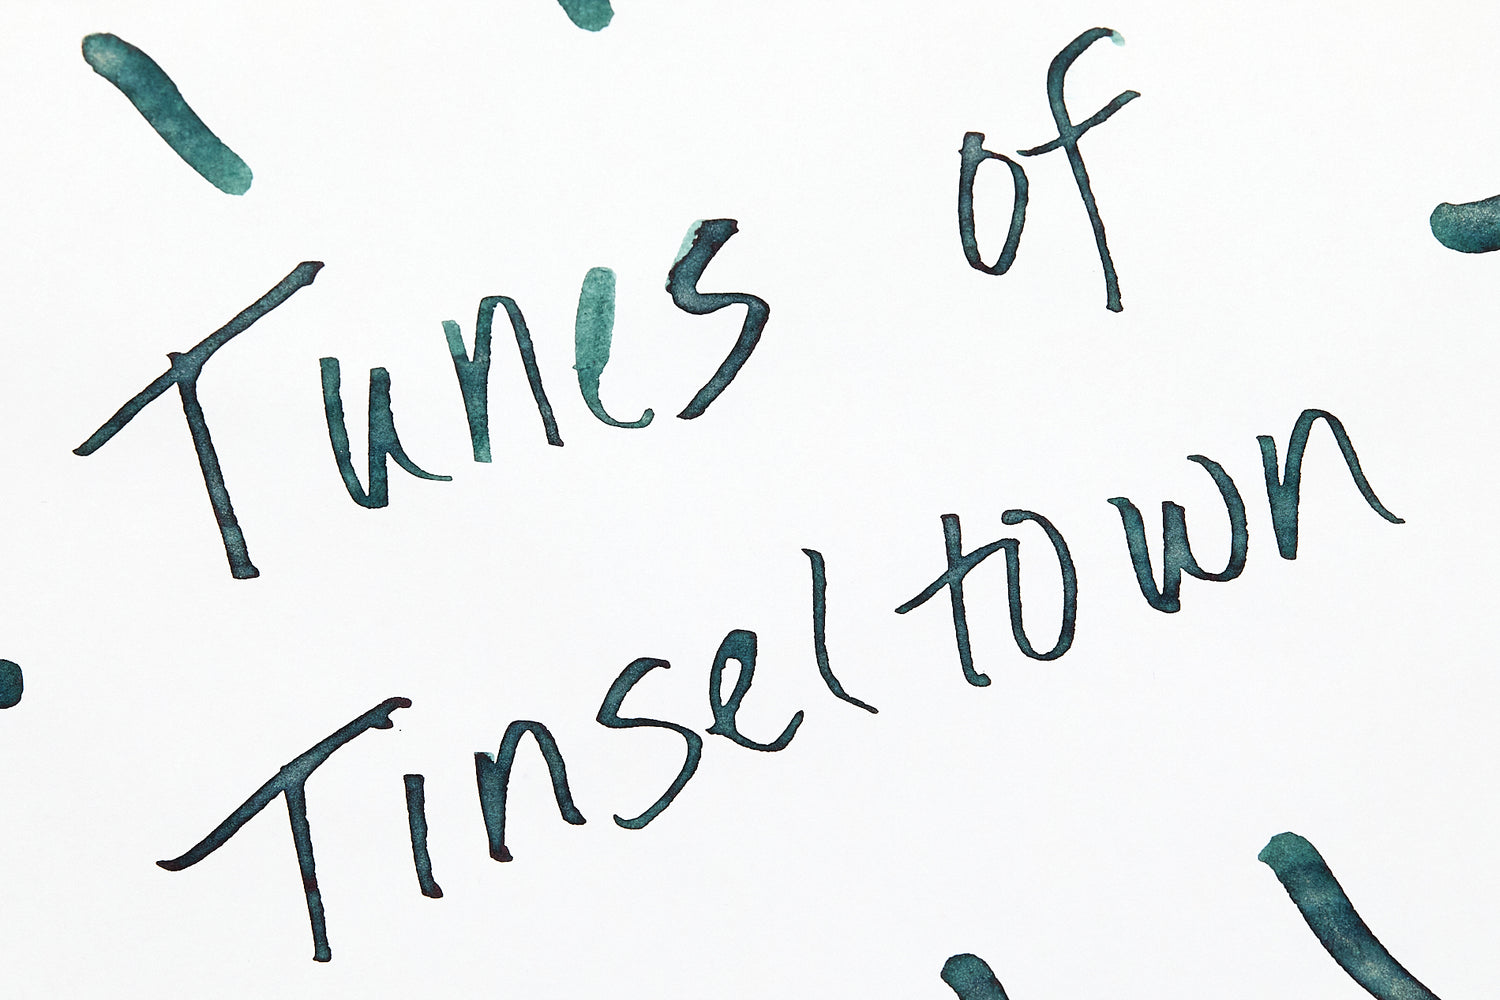 Tunes of
Tinseltown